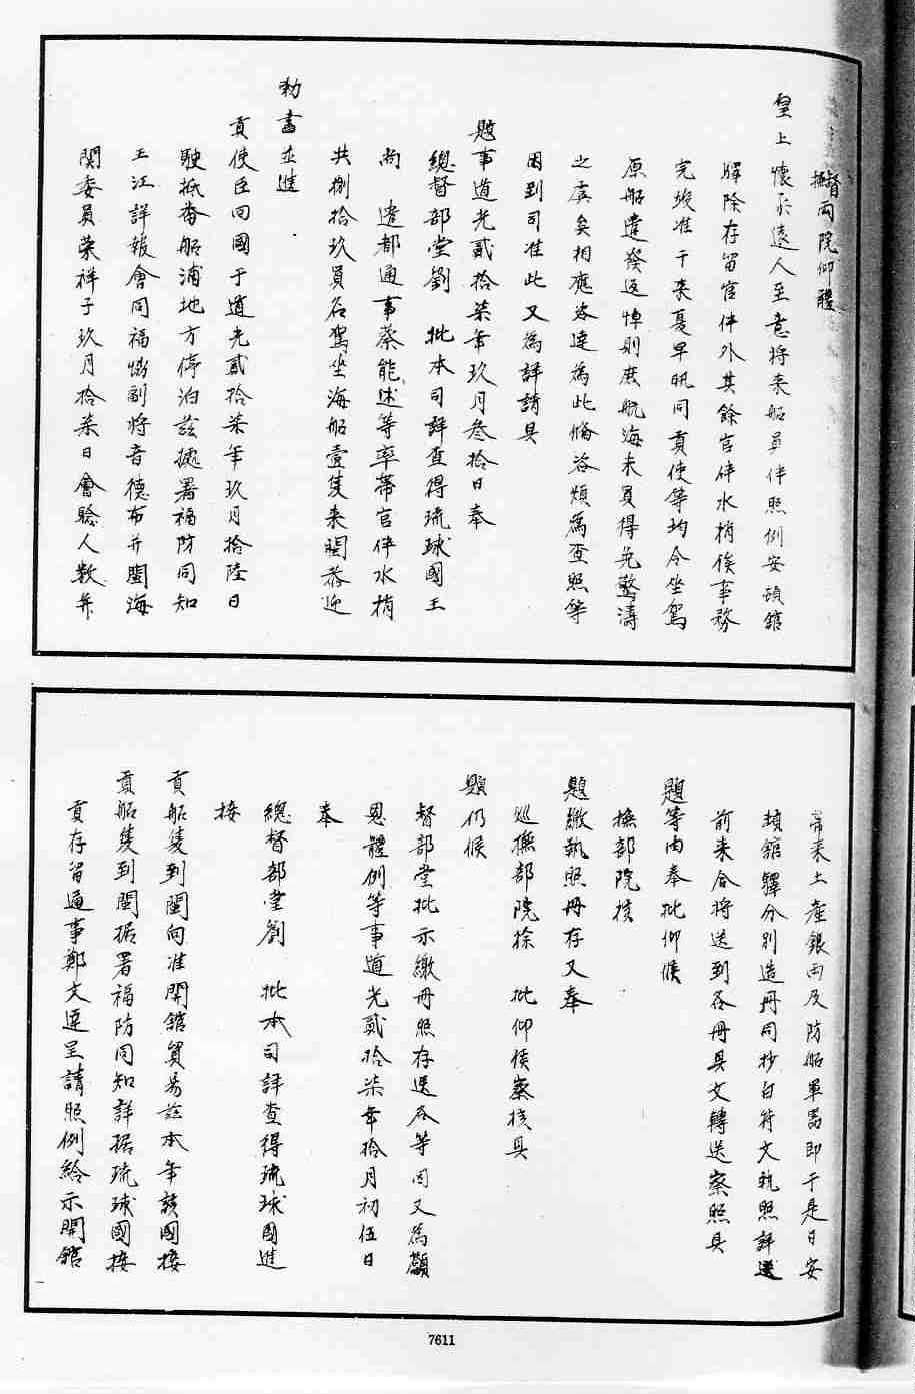 督撫兩院仰體
皇上懷柔遠人至意將来船員伴照例安頓舘
驛除存留官伴外其餘官伴水梢俟事務
完竣准于来夏早汎同貢使等均令坐駕
原船遣發返悼則庶航海末員得免驚濤
之虞矣相應咨達為此俻咨煩為查照等
因到司准此又為詳請具
題事道光貳拾柒年玖月叁拾日奉
總督部堂劉　批本司詳查得琉球國王
尚　遣都通事蔡能述等率帶官伴水梢
共捌拾玖員名駕坐海船壹隻来閩恭迎
勅書並進
貢使臣回國于道光貳拾柒年玖月拾陸日
駛抵畨船浦地方停泊茲據署福防同知
王江詳報會同福協副將音德布并閩海
関委員榮祥于玖月拾柒日會驗人數并
帶来土產銀両及防船軍噐即于是日安
頓舘驛分別造冊同抄白符文執照詳送
前来合將送到各冊具文轉送察照具
題等由奉批仰候
撫部院核
題繳執照冊存又奉
巡撫部院徐　批仰候察核具
題仍候
督部堂批示繳冊照存送各等因又為顧
恩體例等事道光貳拾柒年拾月初伍日
奉
總督部堂劉　批本司詳查得琉球國進
接
貢船隻到閩向准開舘貿易茲本年該國接
貢船隻到閩据署福防同知詳据琉球國接
貢存留通事鄭文運呈請照例給示開舘
7611